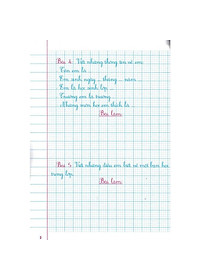 Bài 4. Viết những thông tin về em.
Tên em là ...
Em sinh ngày ... tháng ... năm ...
Em là học sinh lớp ...
Trường em là trường ...
Những môn học em thích là ...
Bài làm
Bài 5. Viết những điều em biết về một bạn học
cùng lớp.
Bài làm